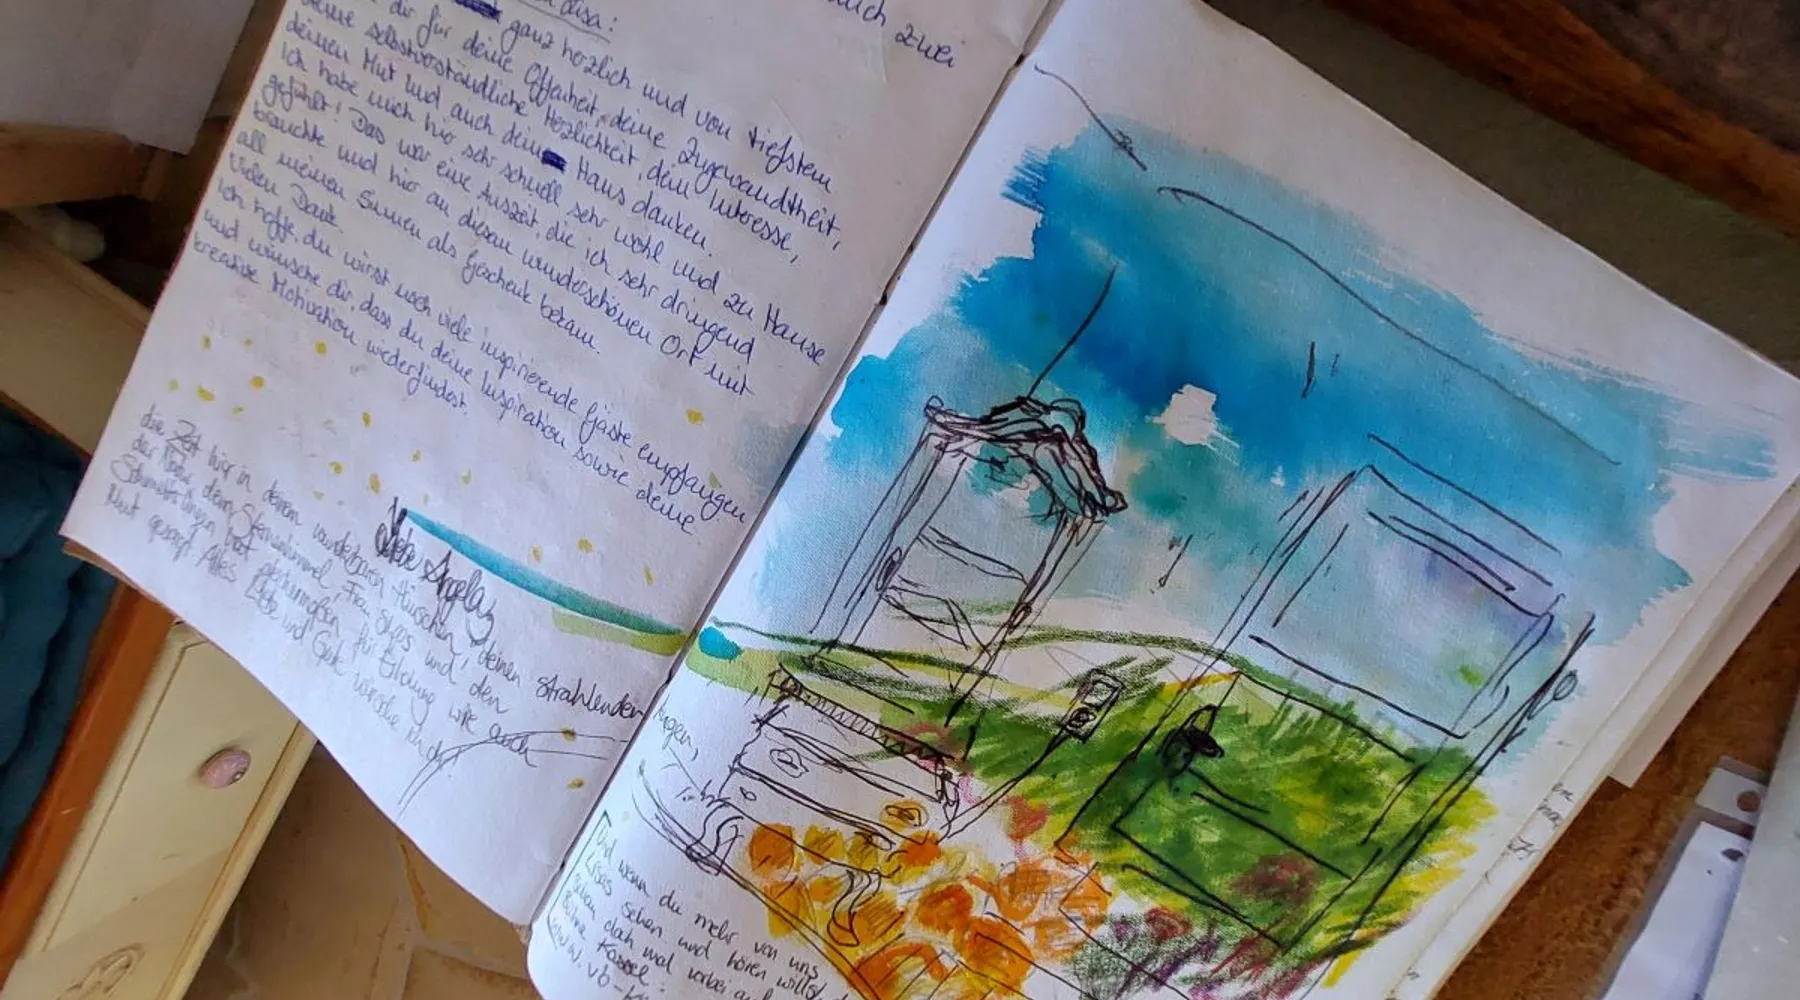 auch zwei
Lisa:
ganz herzlich und von tiefstem
dir für deine Offenheit, deine Zugewandtheit,
deine selbstverständliche Herzlichkeit, dein Interesse,
deinen Mut und auch dein Haus danken.
Ich habe mich hier sehr schnell sehr wohl und zu Hause
gefühlt! Das war eine Auszeit, die ich sehr dringend
brauchte und hier an diesem wunderschönen Ort mit
all meinen Sinnen als Geschenk bekam.
Vielen Dank.
Ich hoffe, du wirst noch viele inspirierende Gäste empfangen
und wünsche dir, dass du deine Inspiration sowie deine
kreative Motivation wiederfindest.
Liebe Angela,
die Zeit hier in deinem wunderbaren Häuschen, deinen strahlenden
Augen,
der Nähe dem Sternenhimmel, Frau und den
hat für Erdung wie auch
Mut gesorgt. Alles Liebe und Gute wünsche ich dir
Und wenn du mehr von uns
sehen und hören willst,
dann doch mal vorbei auf
Bühne Kassel:
www.vb-k